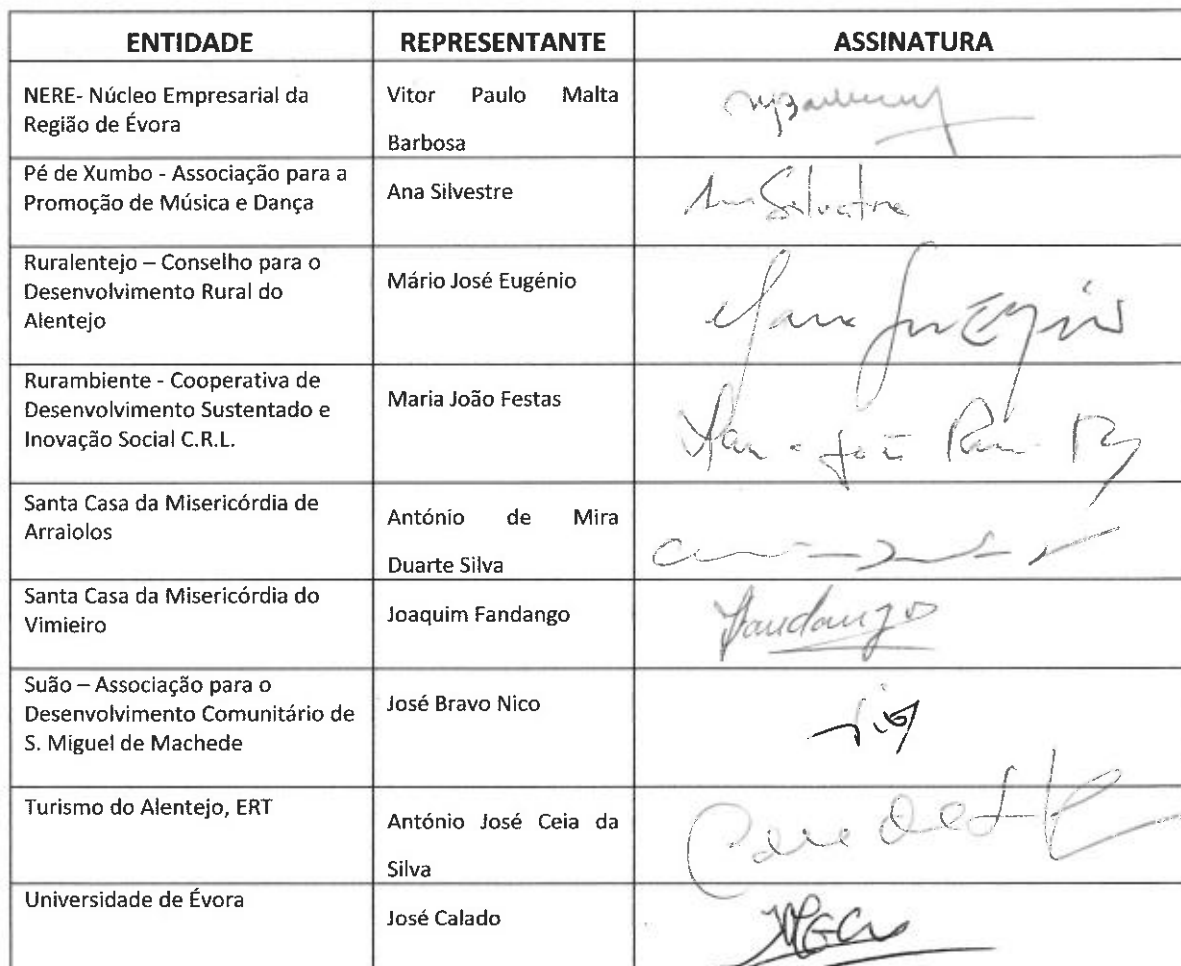 ENTIDADE REPRESENTANTE ASSINATURA
NERE- Núcleo Empresarial da
Região de Évora
Vitor Paulo Malta
Barbosa
Pé de Xumbo - Associação para a
Promoção de Música e Dança
Ana Silvestre
Ana Silvestre
Ruralentejo – Conselho para o
Desenvolvimento Rural do
Alentejo
Mário José Eugénio
Rurambiente - Cooperativa de
Desenvolvimento Sustentado e
Inovação Social C.R.L.
Maria João Festas
Santa Casa da Misericórdia de
Arraiolos
António de Mira
Duarte Silva
Santa Casa da Misericórdia do
Vimieiro
Joaquim Fandango
Fandango
Suão – Associação para o
Desenvolvimento Comunitário de
S. Miguel de Machede
José Bravo Nico
Turismo do Alentejo, ERT
António José Ceia da
Silva
Universidade de Évora
José Calado